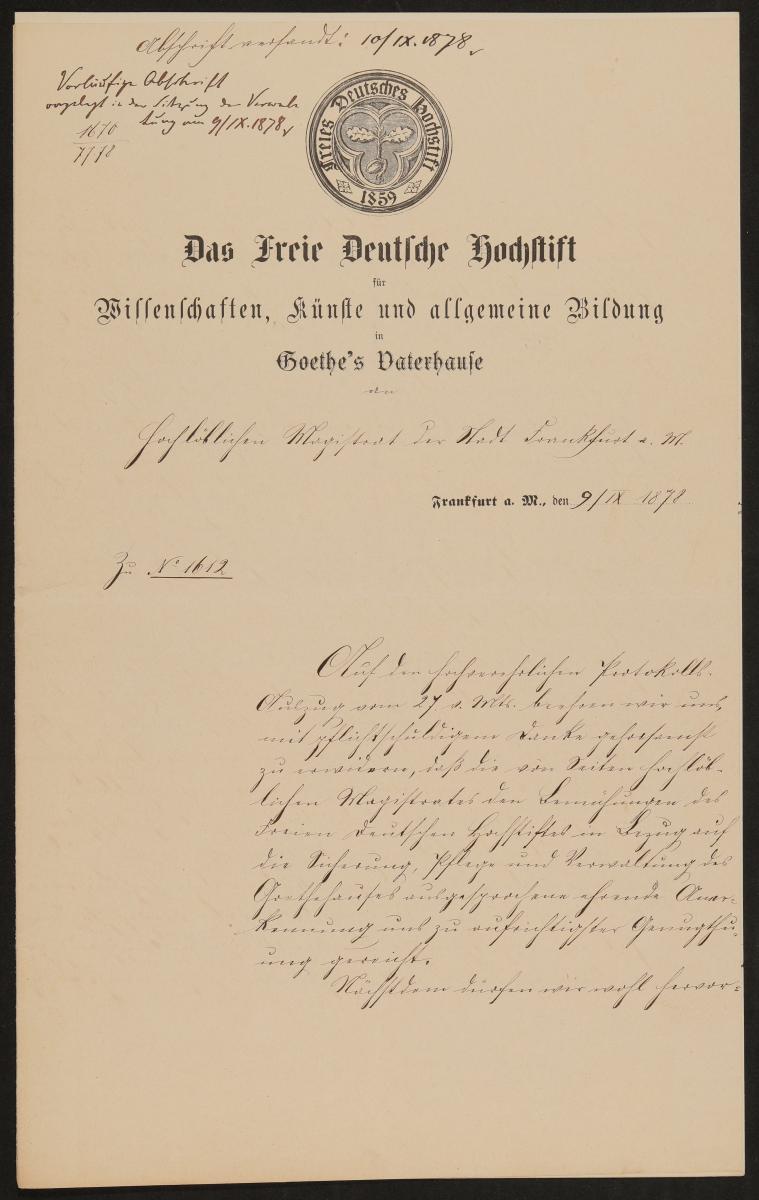 Abschrift versandt: 10/IX. 1878.
Vorläufige Abschrift
vorgelegt in der Sitzung der Verwal
tung am 9/IX. 1878.
1670
7/78
Freies Deutsches Hochstift
1859
Das Freie Deutsche Hochstift
für
Wissenschaften, Künste und allgemeine Bildung
in
Goethe's Vaterhause
an
Hochlöblichen Magistrat der Stadt Frankfurt a. M.
Frankfurt a. M., den 9/IX 1878
Zu No 1612
Auf den hochverehrlichen Protokolls-
Auszug vom 27. v. Mts. beehren wir uns,
mit pflichtschuldigem Danke gehorsamst
zu erwidern, daß die von Seiten Hochlöb-
lichen Magistrates den Bemühungen des
Freien Deutschen Hochstiftes in Bezug auf
die Sicherung, Pflege und Verwaltung des
Goethehauses ausgesprochene ehrende Aner-
kennung uns zu aufrichtigster Genugthu-
ung gereicht.
Nächstdem dürfen wir wohl hervor-